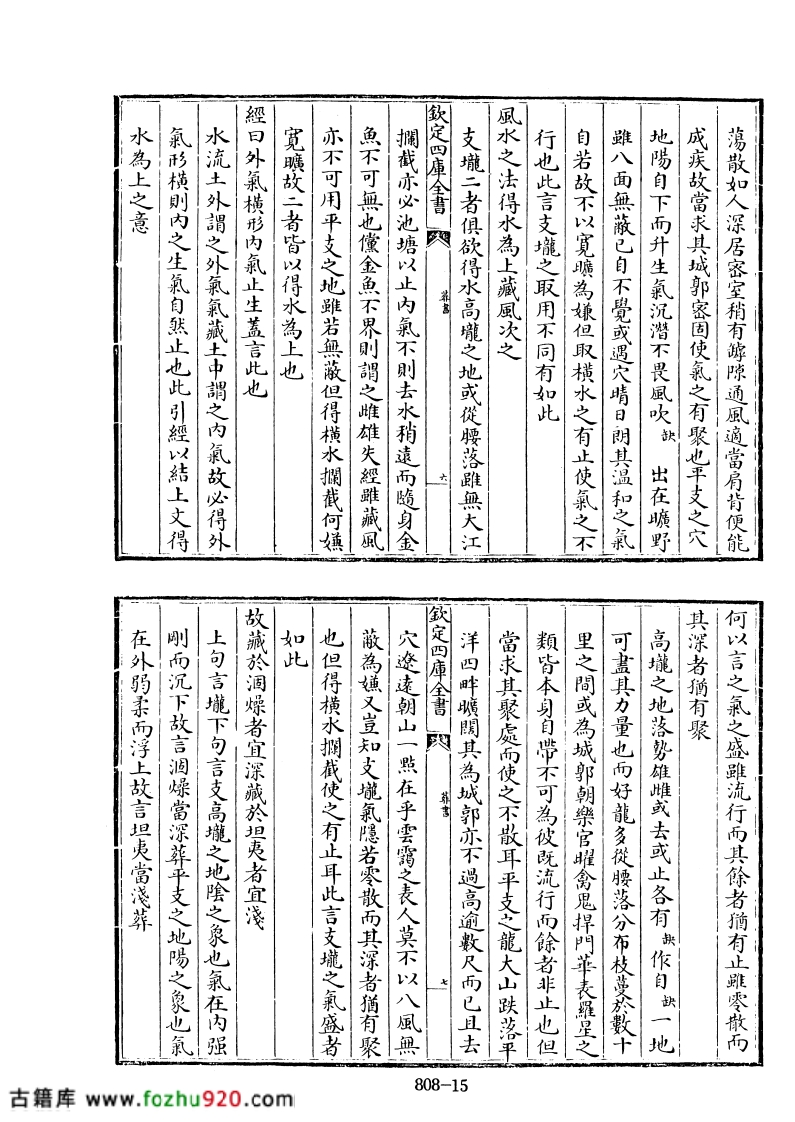 蕩散如人深居密室稍有罅隙通風適當肩背便能
成疾故當求其城郭密固使氣之有聚也平支之穴
地陽自下而升生氣沉潛不畏風吹缺　出在曠野
雖八面無蔽已自不覺或遇穴晴日朗其溫和之氣
自若故不以寬曠為嫌但取橫水之有止使氣之不
行也此言支壠之取用不同有如此
風水之法得水為上藏風次之
支壠二者俱欲得水高壠之地或從腰落雖無大江
欽定四庫全書
葬書
六
攔截亦必池塘以止內氣不則去水稍遠而隨身金
魚不可無也儻金魚不界則謂之雌雄失經雖藏風
亦不可用平支之地雖若無蔽但得橫水攔截何嫌
寬曠故二者皆以得水為上也
經曰外氣橫形內氣止生蓋言此也
水流土外謂之外氣氣藏土中謂之內氣故必得外
氣形橫則內之生氣自然止也此引經以結上文得
水為上之意
何以言之氣之盛雖流行而其餘者猶有止雖零散而
其深者猶有聚
高壠之地落勢雄雌或去或止各有缺作自缺一地
可盡其力量也而好龍多從腰落分布枝蔓於數十
里之間或為城郭朝樂官曜禽鬼捍門華表羅星之
類皆本身自帶不可為彼既流行而餘者非止也但
當求其聚處而使之不散耳平支之龍大山跌落平
洋四畔曠闊其為城郭亦不過高逾數尺而已且去
欽定四庫全書
葬書
七
穴遼遠朝山一點在乎雲靄之表人莫不以八風無
蔽為嫌又豈知支壠氣隱若零散而其深者猶有聚
也但得橫水攔截使之有止耳此言支壠之氣盛者
如此
故藏於涸燥者宜深藏於坦夷者宜淺
上句言壠下句言支高壠之地陰之象也氣在內强
剛而沉下故言涸燥當深葬平支之地陽之象也氣
在外弱柔而浮上故言坦夷當淺葬
808-15
古籍库 www.fozhu920.com